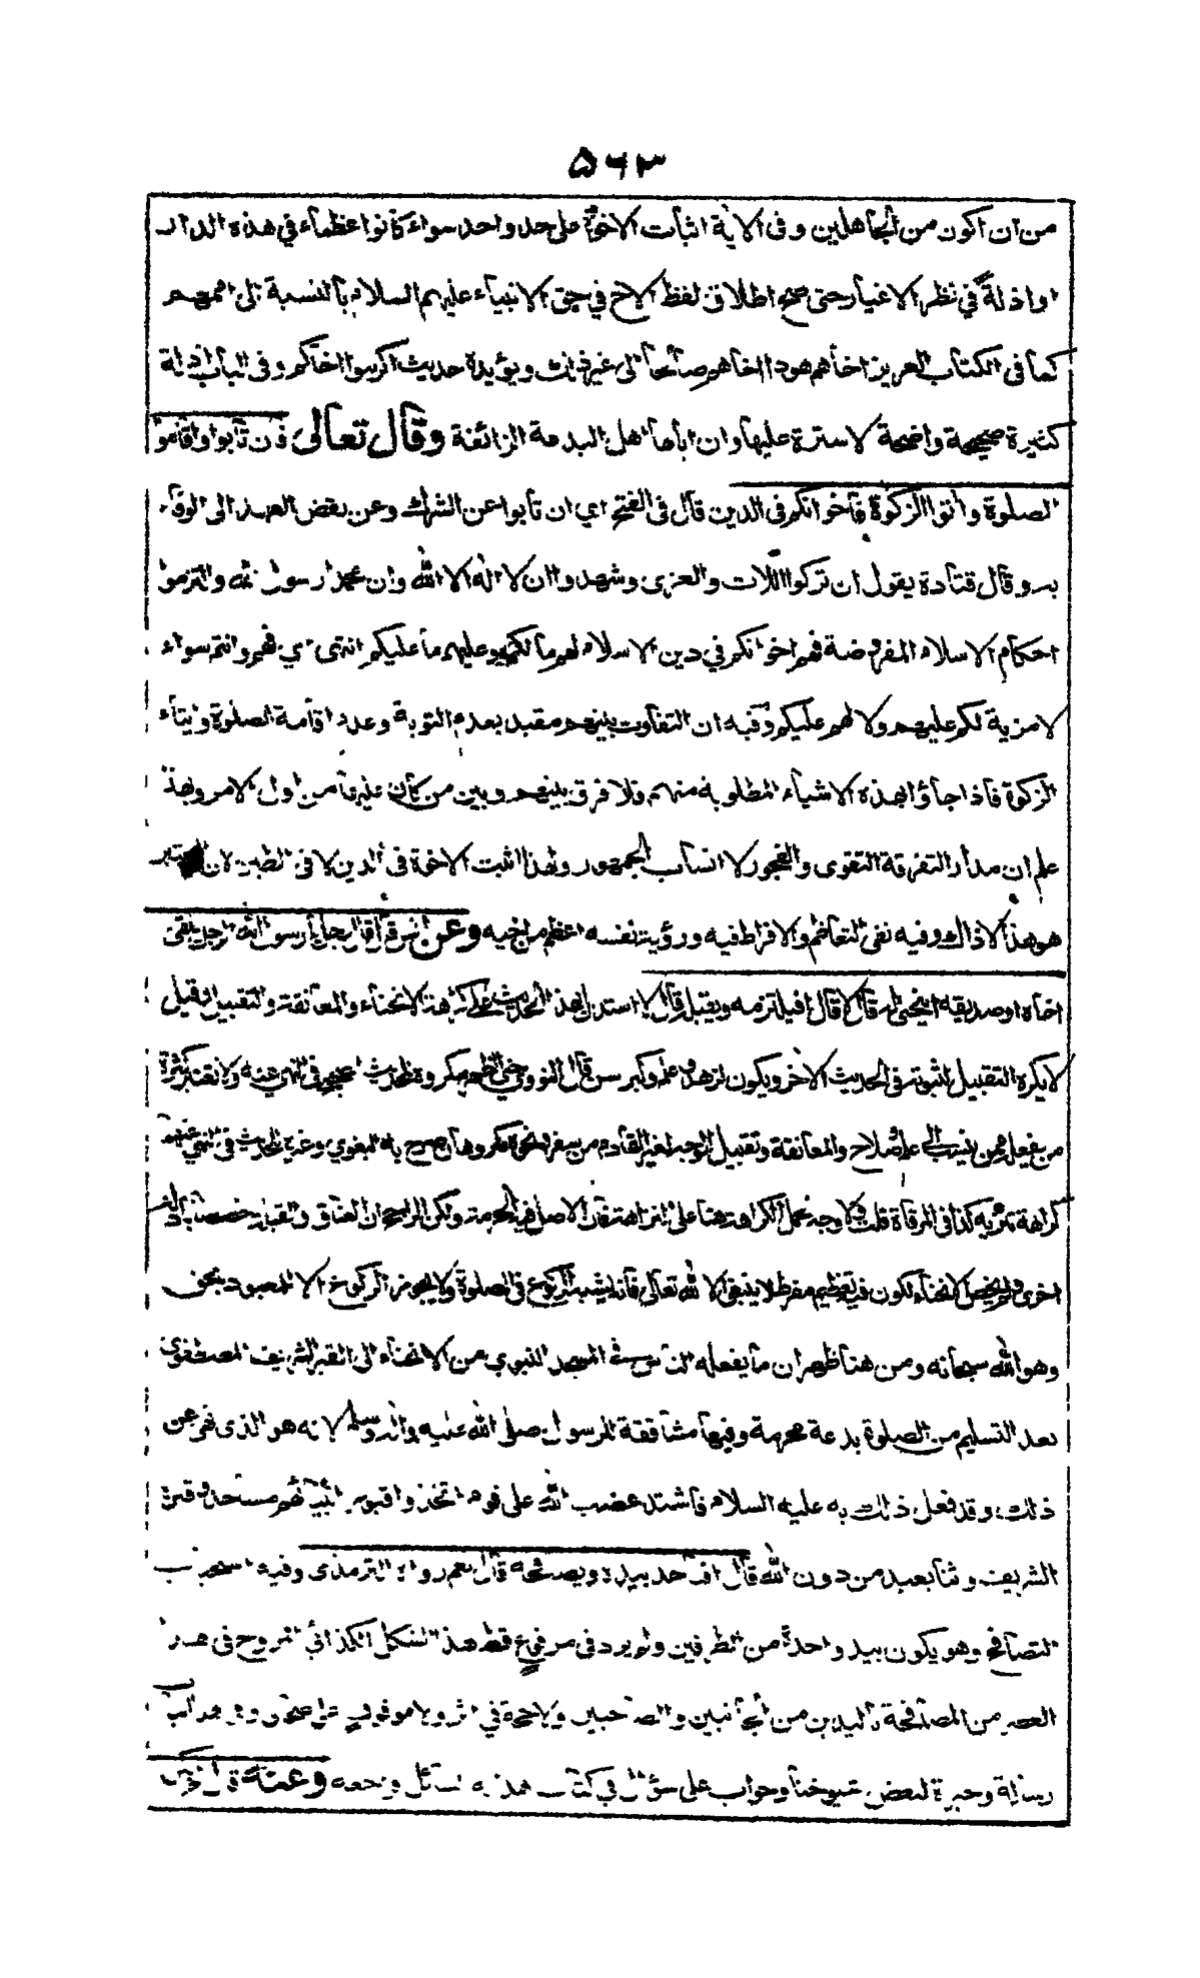 ۵۶۳
من ان اكون من الجاهلين وفى الاية اثبات الاخوة على حد واحد سواء كانوا عظماء في هذه الدار
او اذلة في نظر الاغيار حتى صح اطلاق لفظ الاخ في حق الانبياء عليهم السلام بالنسبة الى اممهم
كما فى الكتاب العزيز اخاهم هودا اخاهم صالحا الى غير ذلك ويؤيده حديث اكرموا اخاكم وفى الباب ادلة
كثيرة صحيحة واضحة لا سترة عليها وان اباها اهل البدعة الزائغة وقال تعالى فان تابوا واقاموا
الصلوة واتوا الزكوة فاخوانكم فى الدين قال فى الفتح اي ان تابوا عن الشرك وعن نقض العهد الى الوفاء
به وقال قتادة يقول ان تركوا اللات والعزى وشهدوا ان لا اله الا الله وان محمدا رسول الله والتزموا
احكام الاسلام المفروضة فهم اخوانكم في دين الاسلام لهم ما لكم وعليهم ما عليكم انتهى اي فهم وانتم سواء
لا مزية لكم عليهم ولا لهم عليكم وفيه ان التفاوت بينهم مقيد بعدم التوبة وعدم اقامة الصلوة وايتاء
الزكوة فاذا جاؤا بهذه الاشياء المطلوبة منهم فلا فرق بينهم وبين من كان عليها من اول الامر وبهذا
علم ان مدار التفرقة التقوى والفجور لا انساب الجمهور ولهذا اثبت الاخوة فى الدين لا فى الطين لان المعتبر
هو هذا لا ذاك وفيه نفى التعاظم والافراط فيه ورؤية نفسه اعظم من اخيه وعن انس قال قال رجل يا رسول الله الرجل يلقى
اخاه او صديقه اينحني له قال لا قال افيلتزمه ويقبله قال لا استدل بهذا الحديث على كراهة الانحناء والمعانقة والتقبيل وقيل
لا يكره التقبيل لثبوته فى الحديث الاخر ويكون لزهد وعلم وكبر سن قال النووي حني الظهر مكروه للحديث الصحيح فى النهي عنه ولا تغتر بكثرة
من يفعله ممن ينسب الى علم وصلاح والمعانقة وتقبيل الوجه لغير القادم من سفر ونحوه مكروهان صرح به البغوي وغيره للحديث فى النهي عنهما
كراهة تنزيه كذا في المرقاة قلت ولا وجه لحمل الكراهة هنا على التنزيه فان الاصل فيه الحرمة ولكن المرجوح ان العناق والتقبيل خصصا بادلة
اخرى ولم يخص الانحناء لكون فيه تعظيم مفرط لا ينبغى الا لله تعالى فانه يشبه الركوع فى الصلوة ولا يجوز الركوع الا للمعبود بحق
وهو الله سبحانه ومن هنا ظهر ان ما يفعله الناس في المسجد النبوي من الانحناء الى القبر الشريف المصطفوي
بعد التسليم من الصلوة بدعة محرمة وفيها مشاققة للرسول صلى الله عليه واله وسلم لانه هو الذى نهى عن
ذلك وقد فعل ذلك به عليه السلام فاشتد غضب الله على قوم اتخذوا قبور انبيائهم مساجد وقبره
الشريف وثنا يعبد من دون الله قال افياخذ بيده ويصافحه قال نعم رواه الترمذى وفيه استحباب
التصافح وهو يكون بيد واحدة من الطرفين ولم يرد فى مرفوع قط هذا الشكل الكذائي المروج فى هذا
العصر من المصافحة باليدين من الجانبين
رسالة وجيزة لبعض شيوخنا وجواب على سؤال في كتاب وعنه قال